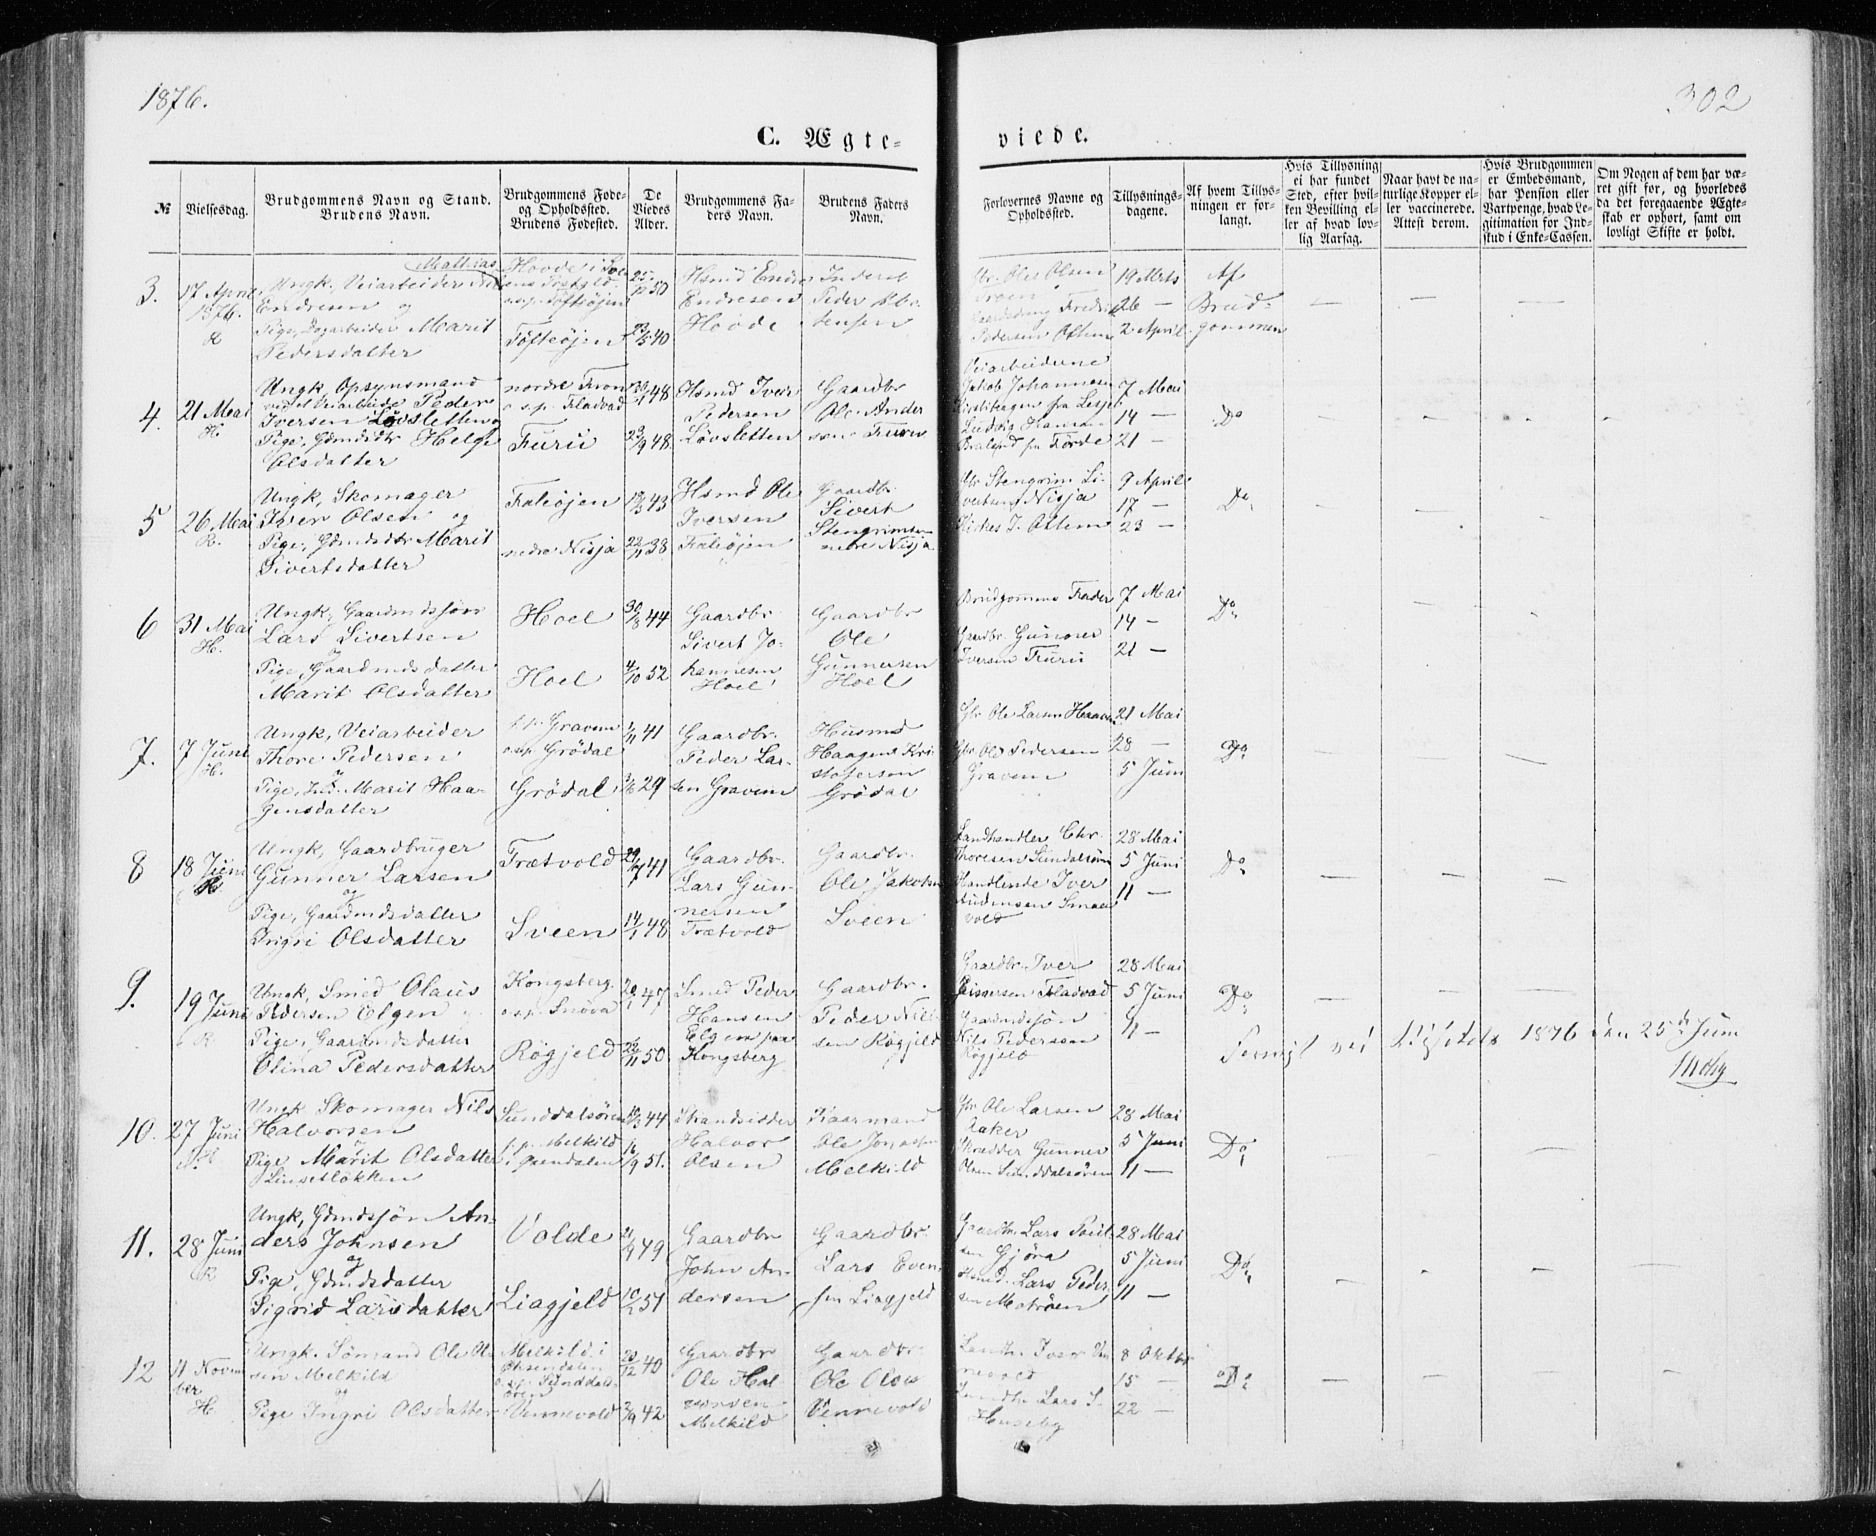 1876.
302
C. Ægte-
viede.
№
Vielsesdag.
Brudgommens Navn og Stand.
Brudens Navn.
Brudgommens Føde-
og Opholdssted.
Brudens Fødested.
De
Viedes
Alder.
Brudgommens Fa-
ders Navn.
Brudens Faders
Navn.
Forlovernes Navne og
Opholdssted.
Tillysnings-
dagene.
Af hvem Tillys-
ningen er for-
langt.
Hvis Tillysning
ei har fundet
Sted, efter hvil-
ken Bevilling el-
ler af hvad lov-
lig Aarsag.
Naar havt de na-
turlige Kopper el-
ler vaccinerede.
Attest derom.
Hvis Brudgommen
er Embedsmand,
har Pension eller
Vartpenge, hvad Le-
gitimation for Ind-
skud i Enke-Cassen.
Om Nogen af dem har væ-
ret gift før, og hvorledes
da det foregaaende Ægte-
skab er ophørt, samt om
lovligt Skifte er holdt.
3.
17 April
1876.
R
Mathias
Ungk. Veiarbeider
Endresen og
Pige, Dagarbeider Marit
Pedersdatter
Hovde i
Töfteöjen
Töfteöjen
50
23/5 40
Hsmd Endre
Endresen
Hovde
Inderst
Peder
Gbr. Ole Olsen
Fredrik
Pedersen Ottem
19 Mrts
26 —
2 April
Af
Brud-
gommen
4.
21 Mai
H.
Ungk. Opsynsmand
ved et Veiarbeide Peder
Iversen Lövsletten og
Pige, Gdmdsdtr Helge
Olsdatter
nordre Fron
o.s.p. Fladvad
Furu
48
23/9 48
Hsmd Iver
Pedersen
Lövsletten
Gaardbr
Ole Ander
sen Furu
Veiarbeiderne
Jakob Johannesen
fra Lesje
Ludvig Hansen
fra Förde
7 Mai
14 —
21 —
Do
5
26 Mai
R.
Ungk, Skomager
Iver Olsen og
Pige, Gdmdsdtr Marit
Sivertsdatter
Faleöjen
nedre Nisja
43
22/11 38
Hsmd Ole
Iversen
Faleöjen
Gaardbr
Sivert
Stengrimsen
nedre Nisja
Gbr Stengrim Si-
vertsen Nisja
Ottem
9 April
17 —
23 —
Do
6
31 Mai
H.
Ungk, Gaardmdssjön
Lars Sivertsen
og
Pige, Gaardmdsdatter
Marit Olsdatter
Hoel
Hoel
30/8 44
4/10 52
Gaardbr
Sivert Jo-
hannesen
Hoel
Gaardbr
Ole
Gunnersen
Hoel
Brudgommens Fader
Gaardbr Gunner
Iversen Furu
7 Mai
14 —
21 —
Do
7.
7 Juni
H.
Ungk, Veiarbeider
Thore Pedersen
og
Pige, Ind. Marit Haa-
gensdatter
f.p. Gravem
o.s.p. Grödal
Grödal
1/11 41
29
Gaardbr.
Peder Lar-
sen Gravem
Husmd
Haagen Kri
stofersen
Grödal
Gbr Ole Larsen
Gbr Ole Pedersen
Gravem
21 Mai
28 —
5 Juni
Do
8
18 Juni
R
Ungk, Gaardbruger
Gunner Larsen
og
Pige, Gaardmdsdatter
Ingri Olsdatter
Frætvold
Sveen
29/7 41
14/1 48
Gaardbr.
Lars Gun-
nersen
Frætvold
Gaardbr.
Ole Jakobsen
Sveen
Landhandler Chr.
Thoresen Sundalsören
Handlende Iver
28 Mai
5 Juni
11 —
Do
9.
19 Juni
R
Ungk, Smed Olaus
Pedersen Elgen og
Pige, Gaardmdsdatter
Elina Pedersdatter
Kongsberg
o.s.p. Snöva
Rögjeld
47
22/11 50
Smed Peder
Hansen
Elgen paa
Kongsberg
Gaardbr.
Peder Niel-
sen Rögjeld
Gaardbr. Iver
Fladvad
Gaardmdssjön
Nils Pedersen
Rögjeld
28 Mai
5 Juni
11 —
Do
1876 den 25de Juni
10.
27 Juni
Ungk Skomager Nils
Halvorsen
og
Pige Marit Olsdatter
Sunddalsören
f.p. Melkild
44
51.
Strandsidder
Halvor
Olsen
Kaarmand
Ole
Melkild
Gbr Ole Larsen
Aaker
Skrædder Gunner
Olsen Sunddalsören
28 Mai
5 Juni
11 —
Do
11.
28 Juni
R
Ungk, Gdmdssjön An-
ders Johnsen
og
Pige, Gdmdsdatter
Sigrid Larsdatter
Volde
Liagjeld
49
51
Gaardbr
John An-
dersen
Gaardbr.
Lars Even
sen Liagjeld
Gaardbr. Lars
sen Gjöra
Hsmd. Lars Peder
28 Mai
5 Juni
11 —
Do
12
11 Novem
ber
H.
Ungk. Sömand Ole Ol
sen Melkild
og
Pige Ingri Olsdatter
Melkild i
Öksendalen
o.s.p. Sunddals
ören
Vennevold
20/12 40
2/9 42
Gaardbr
Ole Hal
vorsen
Melkild
Gaardbr
Ole Olsen
Vennevold
Landh. Iver
Landh. Lars S.
Huseby
8 Oktbr
15 —
22 —
Do